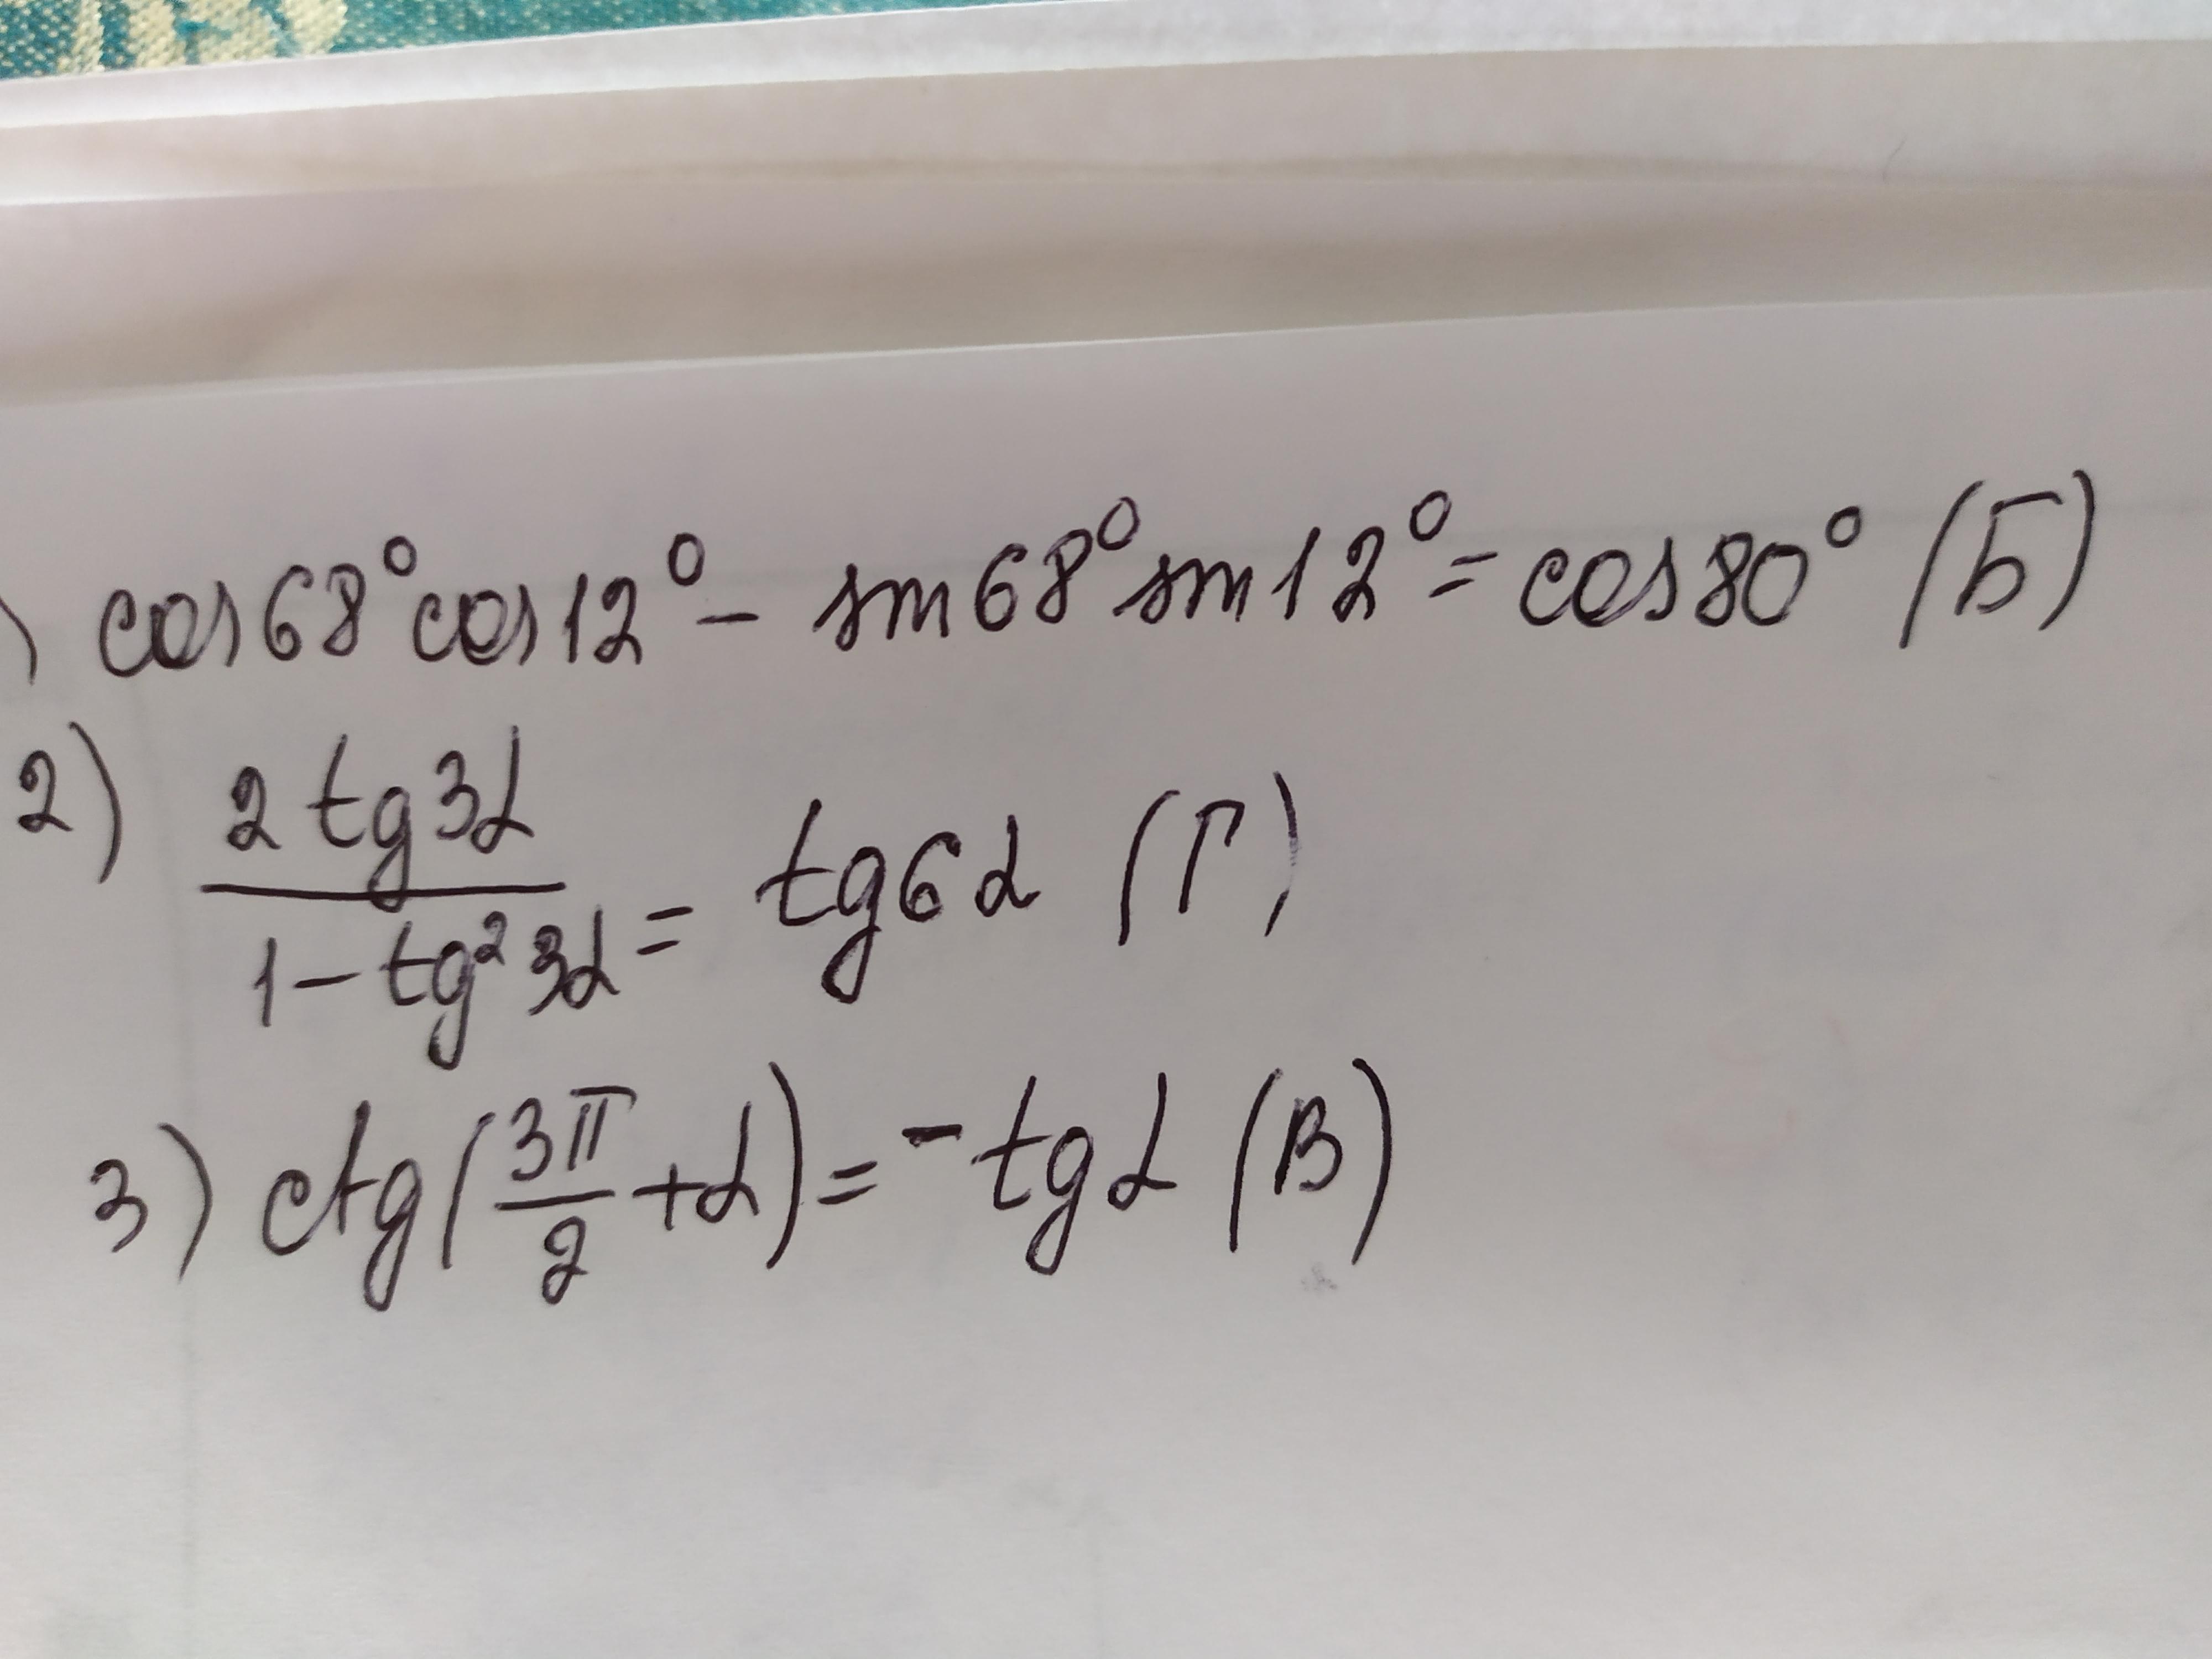 ) cos68°cos12° - sin68°sin12° = cos80° (Б)
2) 2 tg3α / 1 - tg²3α = tg6α (Г)
3) ctg(3π/2 + α) = -tgα (В)